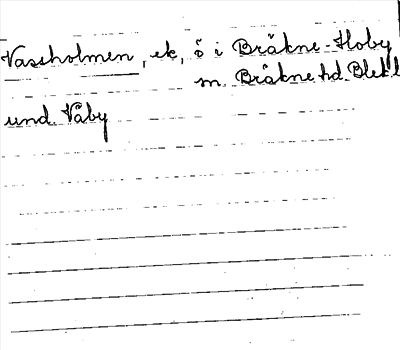 Vassholmen, ek, ö i Bräkne-Hoby
m. Bräkne hd Blek.l
und Våby